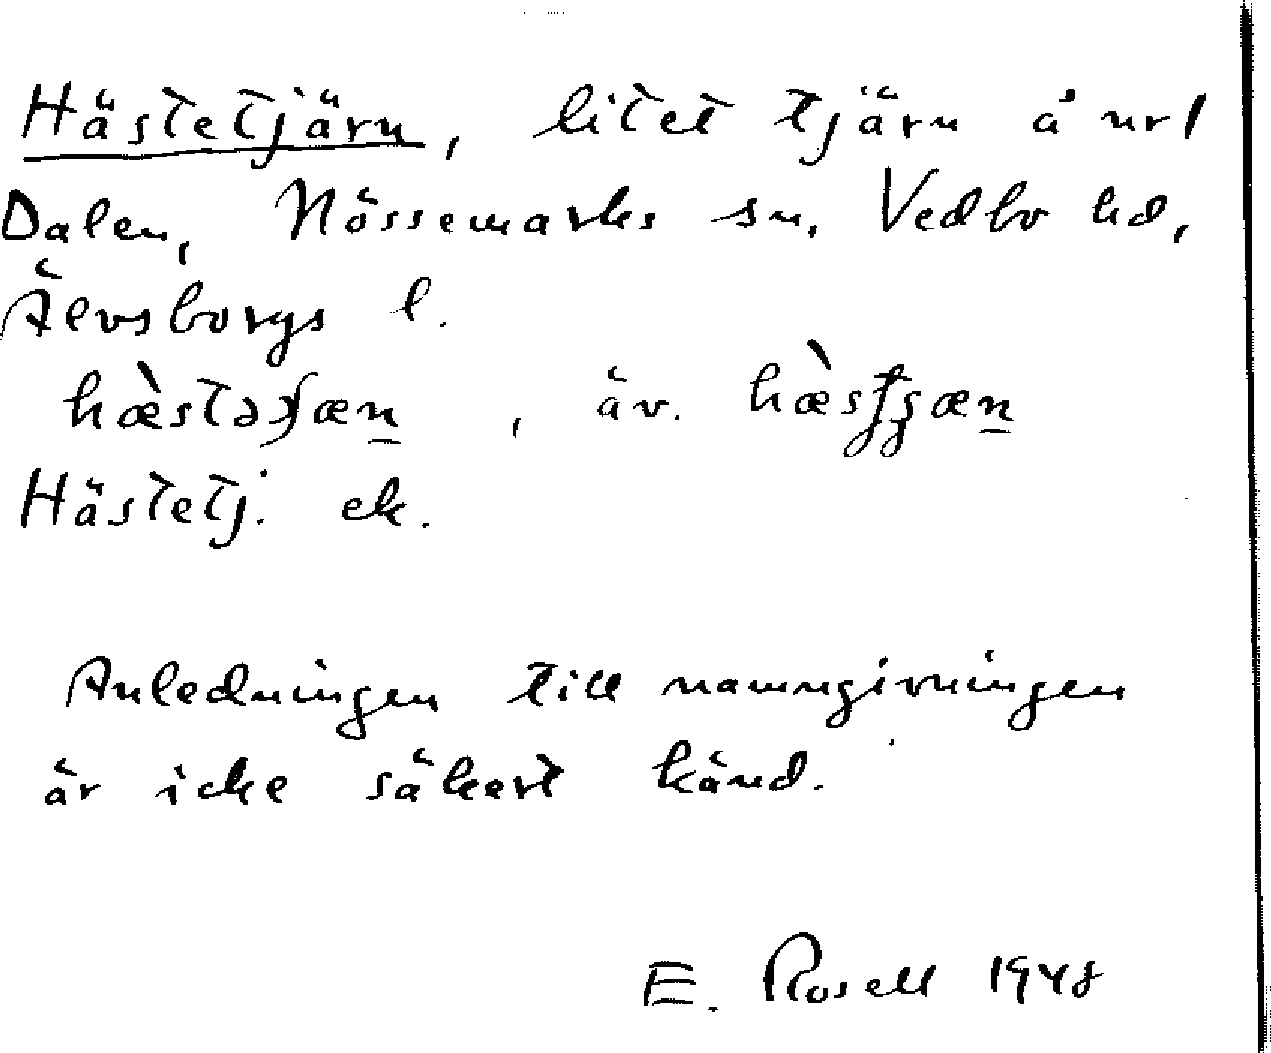 Hästetjärn, litet tjärn å nr 1
Dalen, Nössemarks sn, Vedbo hd,
Älvsborgs l.
, äv.
Hästetj. ek.
Anledningen till namngivningen
är icke säkert känd.
E. Rosell 1948